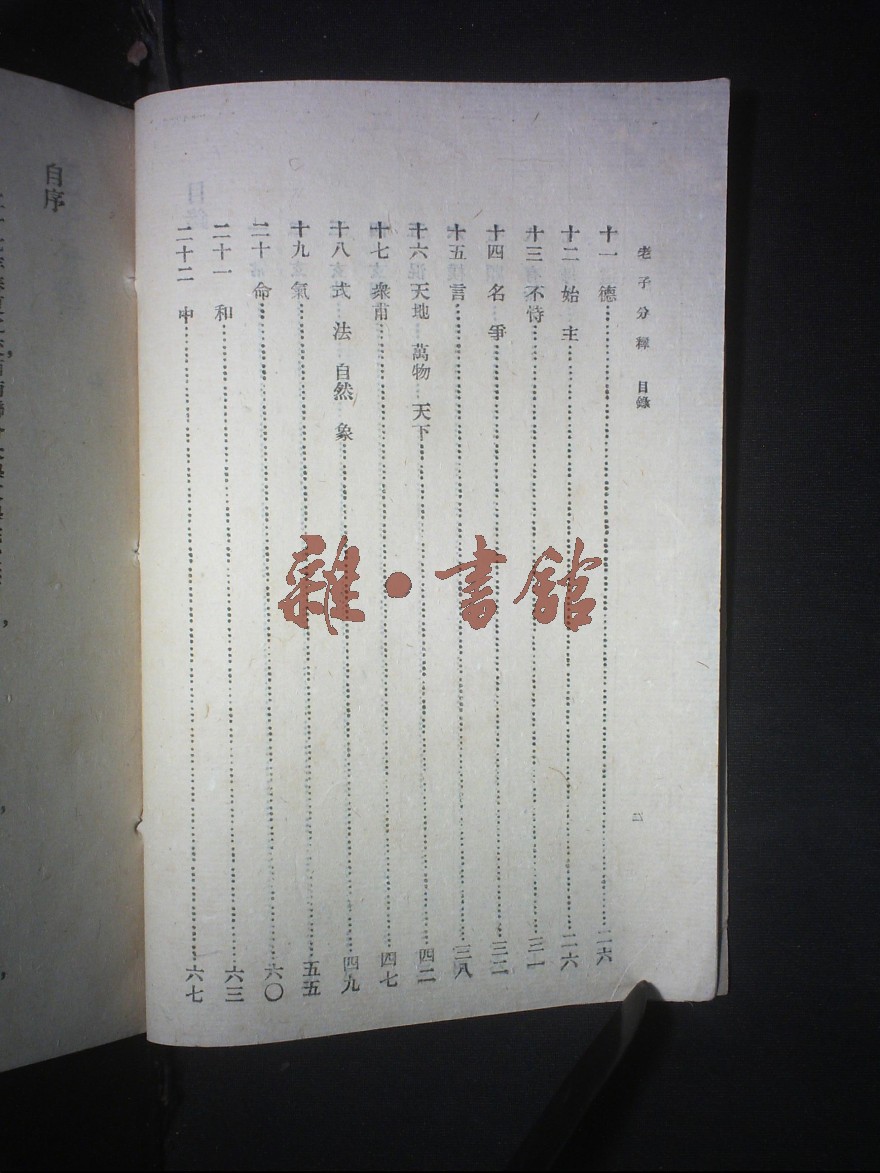 老子分釋 目錄
二
十一 德……二六
十二 始 主……二六
十三 不恃……三一
十四 名 爭……三二
十五 言……三八
十六 天地 萬物 天下……四二
十七 衆甫……四七
十八 式 法 自然 象……四九
十九 氣……五五
二十 命……六〇
二十一 和……六三
二十二 中……六七
自序
雜·書館